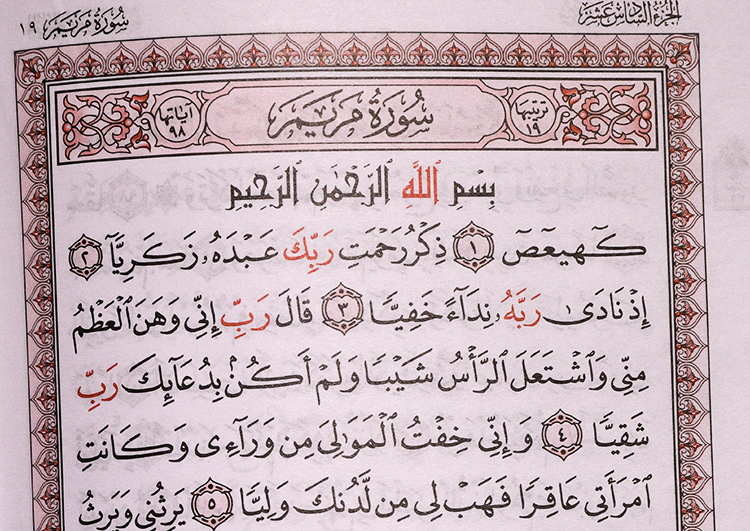 الجزء السادس عشر
سُورَةُ مَرْيَمَ ١٩
ترتيبها ١٩
سُورَةُ مَرْيَمَ
آياتها ٩٨
بِسْمِ ٱللَّهِ ٱلرَّحْمَٰنِ ٱلرَّحِيمِ
كٓهيعٓصٓ ١ ذِكْرُ رَحْمَتِ رَبِّكَ عَبْدَهُۥ زَكَرِيَّآ ٢
إِذْ نَادَىٰ رَبَّهُۥ نِدَآءً خَفِيًّا ٣ قَالَ رَبِّ إِنِّى وَهَنَ ٱلْعَظْمُ
مِنِّى وَٱشْتَعَلَ ٱلرَّأْسُ شَيْبًا وَلَمْ أَكُنۢ بِدُعَآئِكَ رَبِّ
شَقِيًّا ٤ وَإِنِّى خِفْتُ ٱلْمَوَٰلِىَ مِن وَرَآءِى وَكَانَتِ
ٱمْرَأَتِى عَاقِرًا فَهَبْ لِى مِن لَّدُنكَ وَلِيًّا ٥ يَرِثُنِى وَيَرِثُ